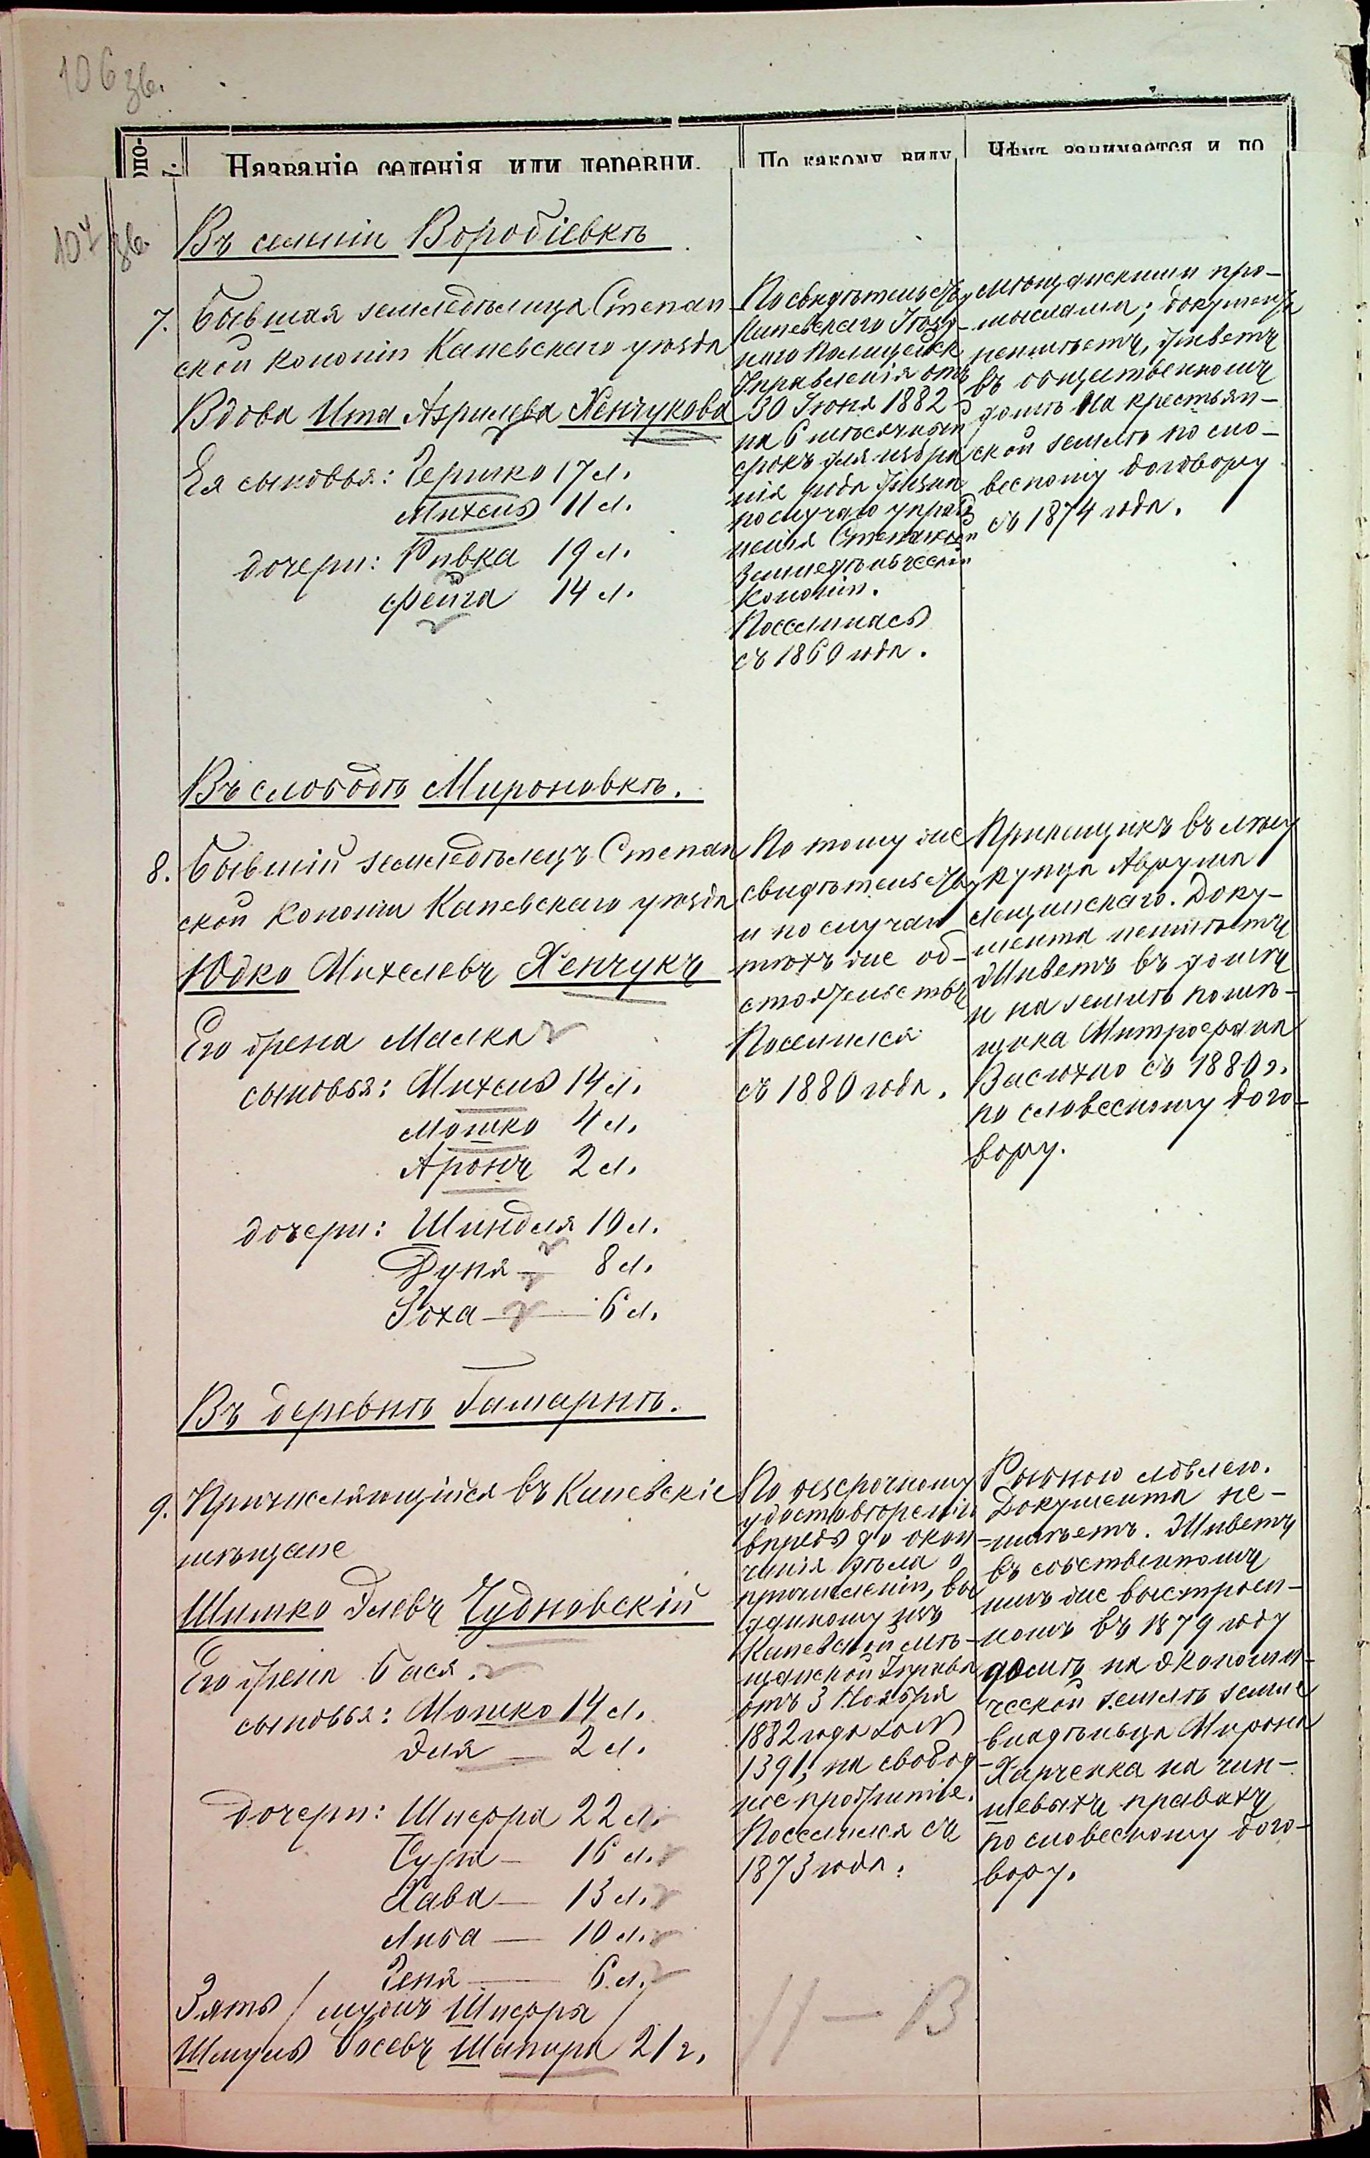 106 зв.
Названіе селенія или деревни.
По какому виду
Чѣмъ занимается и по
107 зв.
Въ селеніи Воробіевкѣ
7. Бывшая земледѣлица Степан-
ской колоніи Каневскаго уѣзда
Вдова Ита Азрилева Хенчукова
Ея сыновья: Гершко 17 л.
Михель 11 л.
дочери: Ривка 19 л.
Фейга 14 л.
По свидѣтельству
Каневскаго Уѣзд-
наго Полицейск
Управленія отъ
30 Іюня 1882
на 6 мѣсячный
срокъ для избра
нія рода жизни
по случаю упразд
ненія Степанской
Земледѣльческой
Колоніи.
Поселилась
съ 1860 года.
мѣщанскими про-
мыслами; документа
неимѣетъ, живетъ
въ общественномъ
домѣ на крестьян-
ской землѣ по сло-
весному договору
съ 1874 года.
Въ слободѣ Мироновкѣ.
8. Бывшій земледѣлецъ Степан
ской колоніи Каневскаго уѣзда
Юдко Михелевъ Хенчукъ
Его жена Малка
сыновья: Михель 14 л.
Мошко 4 л.
Аронъ 2 л.
дочери: Шиндля 10 л.
Дуня 8 л.
Зоха 6 л.
По тому же
свидѣтельству
и по случаю
тѣхъ же об-
стоятельствъ
Поселился
съ 1880 года.
Прикащикъ въ лѣсу
купца Аврума
Лещинскаго. Доку-
мента неимѣетъ
Живетъ въ домѣ
и на землѣ помѣ-
щика Митрофана
Васюхно съ 1880 г.
по словесному дого-
вору.
Въ деревнѣ Гамарнѣ.
9. Причисляющійся въ Каневскіе
мѣщане
Шимко Элевъ Чудновскій
Его жена Бася
сыновья: Мошко 14 л.
Эля 2 л.
дочери: Шифра 22 л.
Сура 16 л.
Хава 13 л.
Либа 10 л.
Геня 6 л.
Зять / мужъ Шифры /
Шмуль Іосевъ Шапира 21 г.
По безсрочному
удостовѣренію
впредь до окон
чанія дѣла о
причисленіи, вы
данному изъ
Каневской мѣ-
щанской Управы
отъ 3 Ноября
1882 года за №
1391, на свобод-
ное прожитіе.
Поселился съ
1873 года.
Рыбною ловлею.
Документа не-
имѣетъ. Живетъ
въ собственномъ
имъ же выстроен-
номъ въ 1879 году
домѣ на экономи-
ческой землѣ земле
владѣльца Мирона
Харченка на чин-
шевыхъ правахъ
по словесному дого-
вору.
11 – В